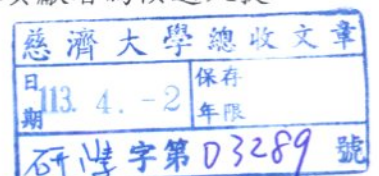 慈濟大學總收文章
日期 113. 4. -2 保存年限
字第 D3289 號